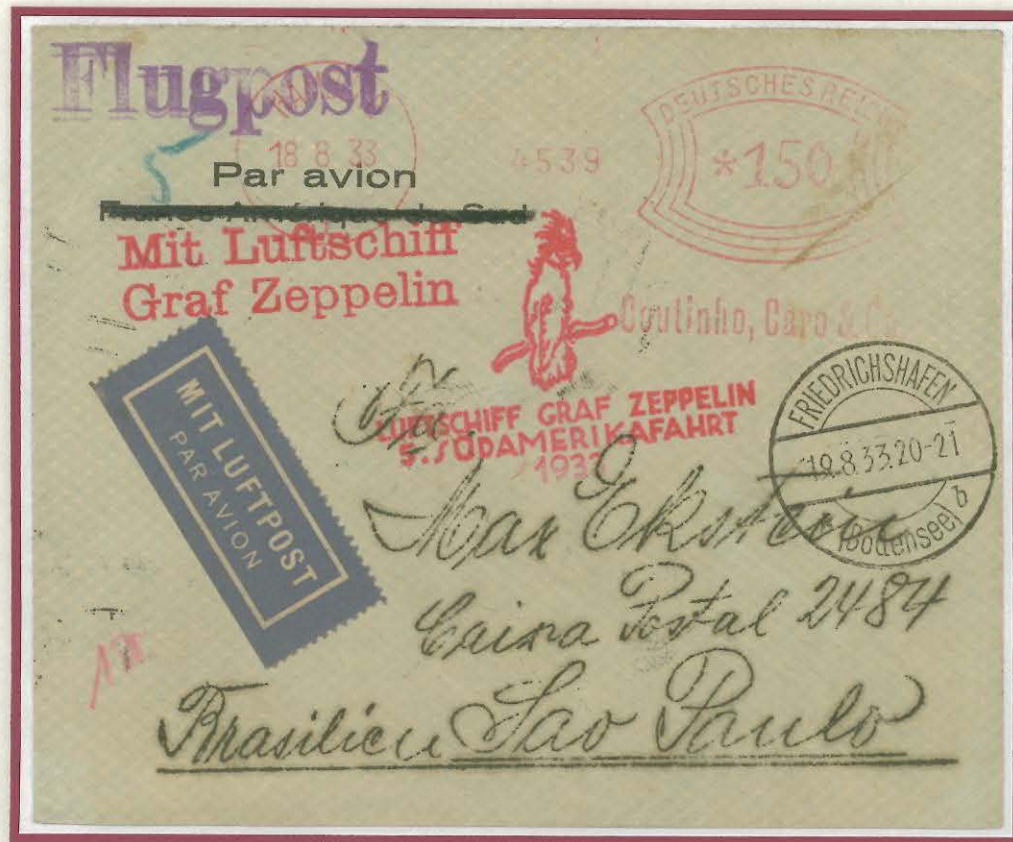 Flugpost
18 8 33
4539
DEUTSCHES REICH
*1.50
Par avion
France-Amérique du Sud
Mit Luftschiff
Graf Zeppelin
Coutinho, Caro & Co.
LUFTSCHIFF GRAF ZEPPELIN
5. SÜDAMERIKAFAHRT
1933
MIT LUFTPOST
PAR AVION
FRIEDRICHSHAFEN
19.8.33.20-21
(Bodensee) b
Max Ekstein
Caixa Postal 2484
Brasilien Sao Paulo